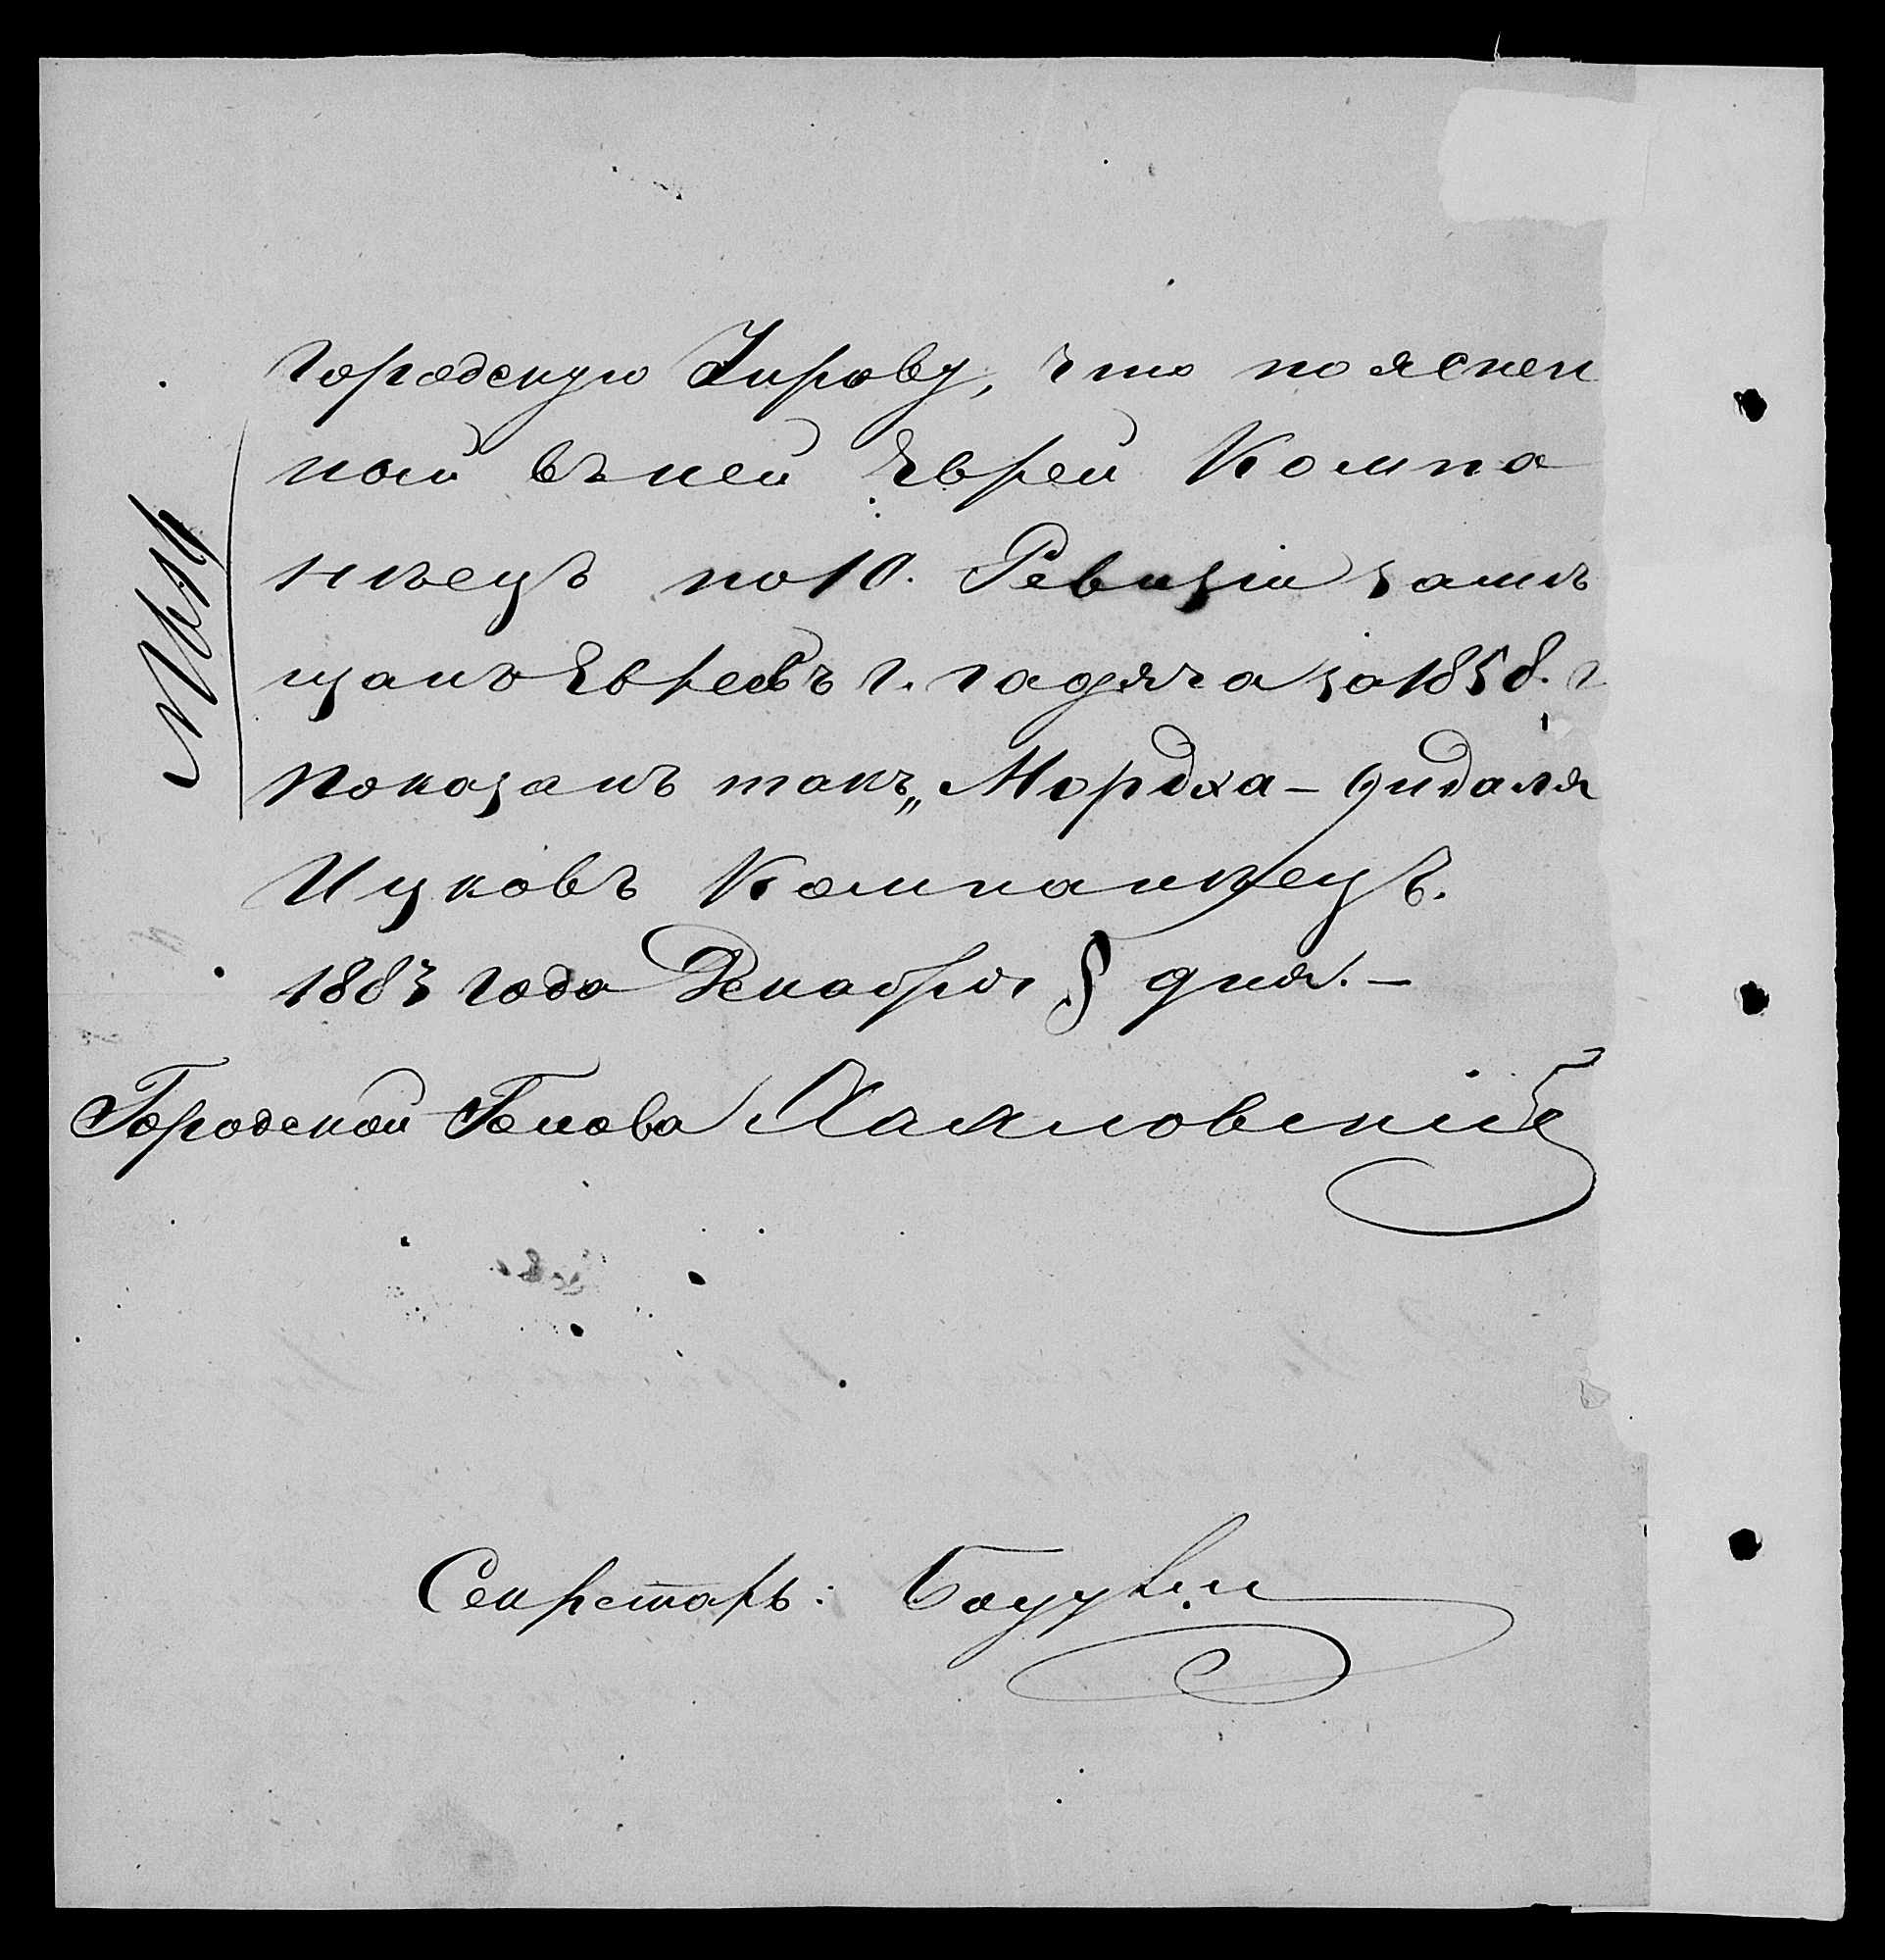 Городскую Управу, что пояснен
ный въ ней Еврей Компа
нѣецъ по 10. Ревизіи замѣ
щанъ Евреевъ г. Гадяча за 1858. г
показанъ такъ „Мордха-Видаля
Ицковъ Компанѣецъ.
1883 года Декабря 8 дня.—
Городской Голова
Секретарь: